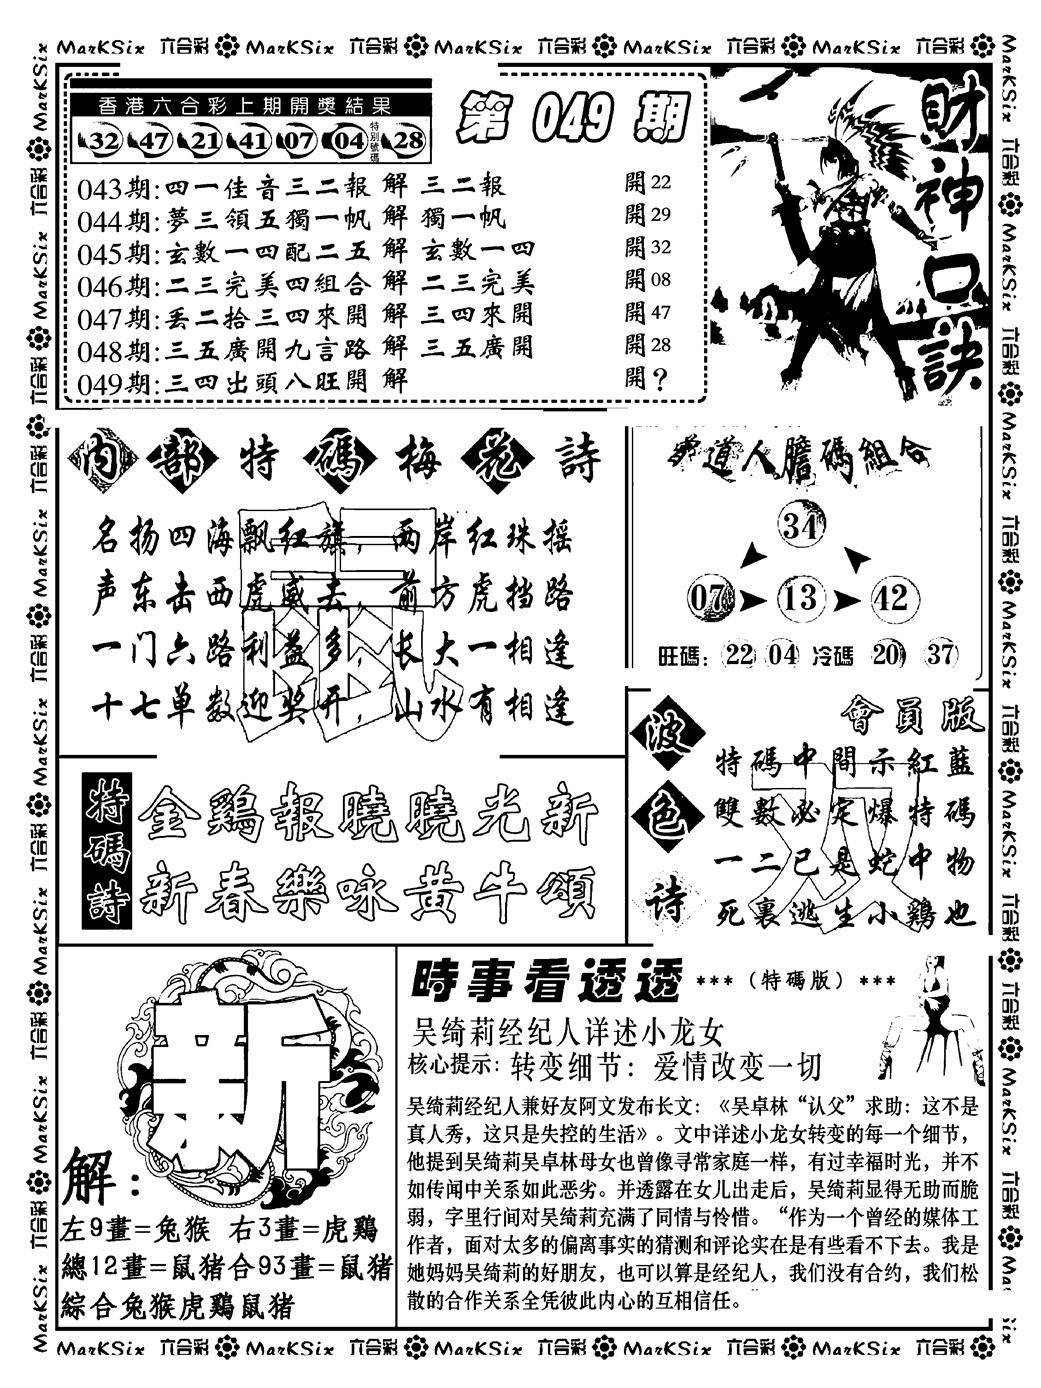 MarKSix 六合彩 MarKSix 六合彩 MarKSix 六合彩 MarKSix 六合彩 MarKSix 六合彩
香港六合彩上期開獎結果
32 47 21 41 07 04 特別號碼 28
第 049 期
043期:四一佳音三二報 解 三二報 開22
044期:夢三領五獨一帆 解 獨一帆 開29
045期:玄數一四配二五 解 玄數一四 開32
046期:二三完美四組合 解 二三完美 開08
047期:丟二拾三四來開 解 三四來開 開47
048期:三五廣開九言路 解 三五廣開 開28
049期:三四出頭八旺開 解 開?
財神口訣
内部特碼梅花詩
名扬四海飘红旗，两岸红珠摇
声东击西虎威去，前方虎挡路
一门六路利益多，长大一相逢
十七单数迎奖开，山水有相逢
道人膽碼組合
34
07 13 42
旺碼: 22 04 冷碼 20 37
波色诗
會員版
特碼中間示紅藍
雙數必定爆特碼
一二已是蛇中物
死裏逃生小鷄也
特碼詩
金鷄報曉曉光新
新春樂咏黄牛頌
新
解:
左9畫=兔猴 右3畫=虎鷄
總12畫=鼠猪合93畫=鼠猪
綜合兔猴虎鷄鼠猪
時事看透透 ***（特碼版）***
吴绮莉经纪人详述小龙女
核心提示: 转变细节：爱情改变一切
吴绮莉经纪人兼好友阿文发布长文：《吴卓林“认父”求助：这不是
真人秀，这只是失控的生活》。文中详述小龙女转变的每一个细节，
他提到吴绮莉吴卓林母女也曾像寻常家庭一样，有过幸福时光，并不
如传闻中关系如此恶劣。并透露在女儿出走后，吴绮莉显得无助而脆
弱，字里行间对吴绮莉充满了同情与怜惜。“作为一个曾经的媒体工
作者，面对太多的偏离事实的猜测和评论实在是有些看不下去。我是
她妈妈吴绮莉的好朋友，也可以算是经纪人，我们没有合约，我们松
散的合作关系全凭彼此内心的互相信任。
MarKSix 六合彩 MarKSix 六合彩 MarKSix 六合彩 MarKSix 六合彩 MarKSix 六合彩